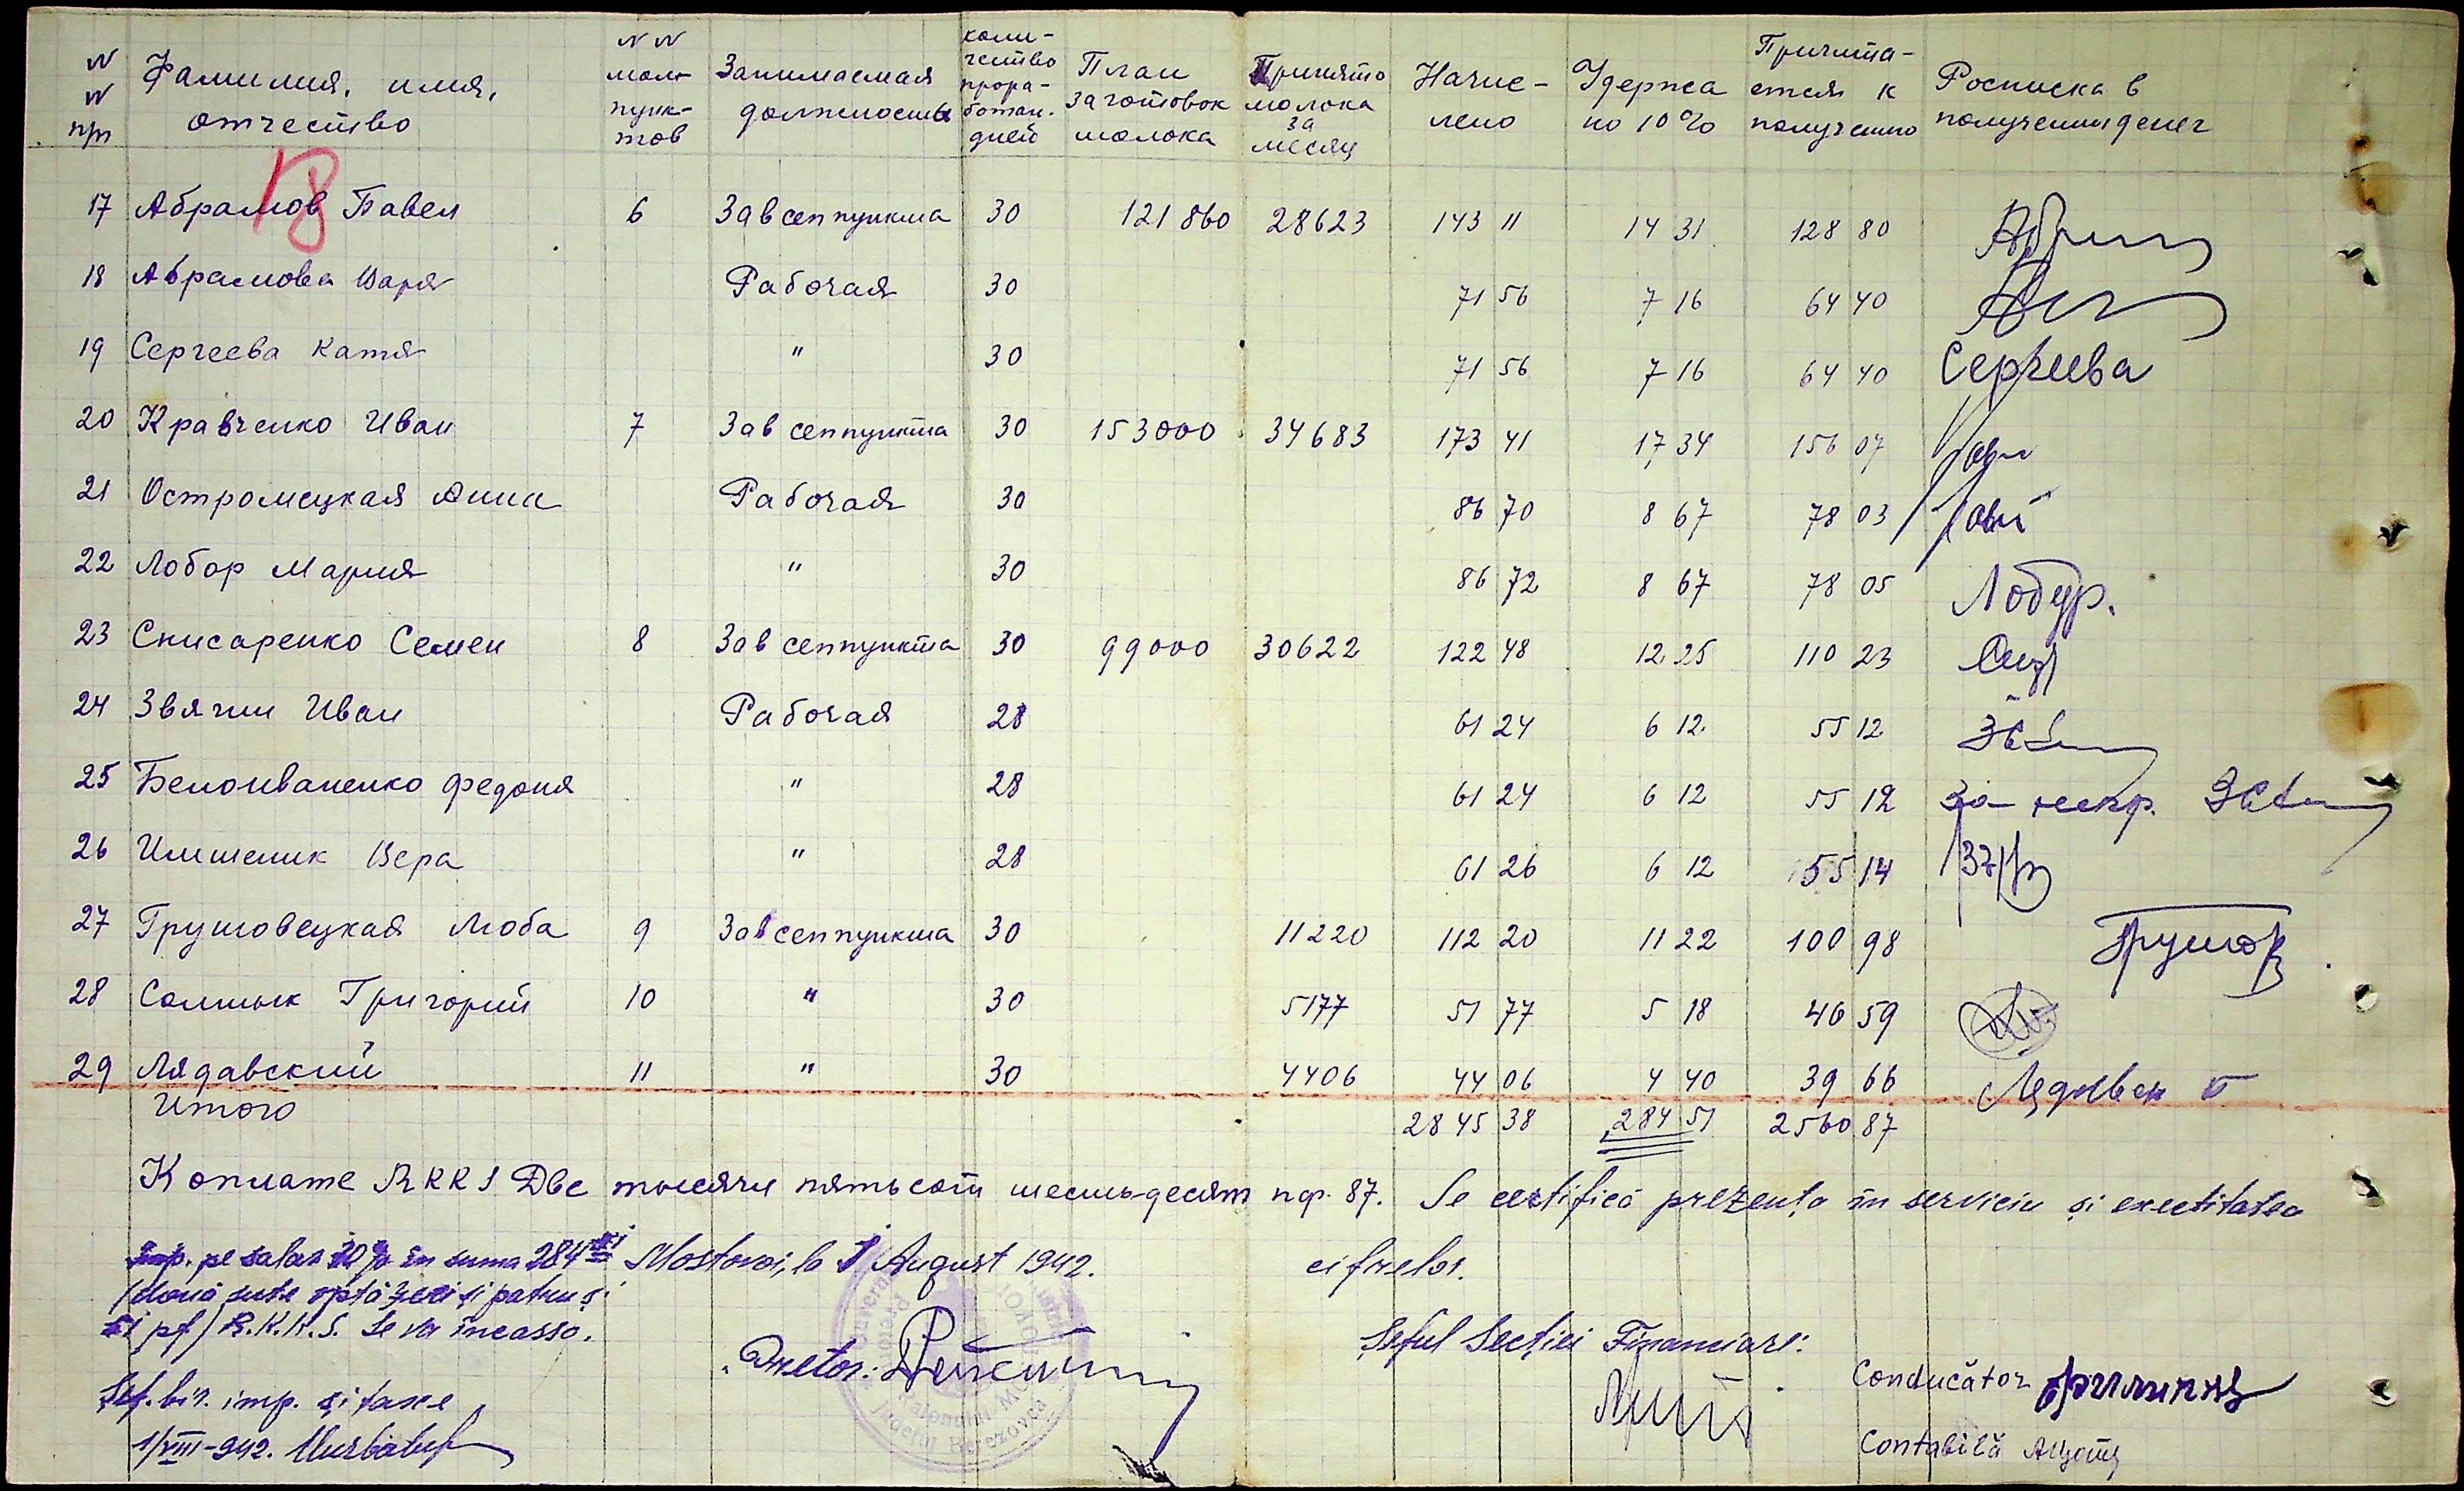 N N пп Фамилия, имя, отчество N N мол- пунк- тов Занимаемая должность коли- чество прора- ботан. дней План заготовок молока Принято молока за месяц Начис- лено Удержа но 10% Причита- ется к получению Росписка в получении денег
18
17 Абрамов Павел 6 Зав сеппункта 30 121860 28623 143 11 14 31 128 80
18 Абрамова Варя Рабочая 30 71 56 7 16 64 40
19 Сергеева Катя " 30 71 56 7 16 64 40 Сергеева
20 Кравченко Иван 7 Зав сеппункта 30 153000 34683 173 41 17 34 156 07
21 Остромецкая Анна Рабочая 30 86 70 8 67 78 03
22 Лобор Мария " 30 86 72 8 67 78 05 Лобур.
23 Снисаренко Семен 8 Зав сеппункта 30 99000 30622 122 48 12 25 110 23
24 Звягин Иван Рабочая 28 61 24 6 12 55 12
25 Белоиваненко Федоня " 28 61 24 6 12 55 12 за негр.
26 Илишеник Вера " 28 61 26 6 12 55 14
27 Грушовецкая Люба 9 Зав сеппункта 30 11220 112 20 11 22 100 98 Грушов
28 Солтык Григорий 10 " 30 5177 51 77 5 18 46 59
29 Лядавский 11 " 30 4406 44 06 4 40 39 66
Итого 2845 38 284 51 2560 87
К оплате RKKS Две тысячи пятьсот шестьдесят пф. 87. Se certifică prezența în serviciu și exectitatea
cifrelor.
Imp. pe salar 10% în suma 284 51 Mostovoi, la 1 August 1942.
/două sute optăzeci și patru și
51 pf/ R.K.K.S. Se va încassa.
Șef. bir. imp. și taxe
1/VIII-942.
Pretor:
Șeful Secției Financiare:
Conducător Филипец
Contabilă
Județul Berezovca